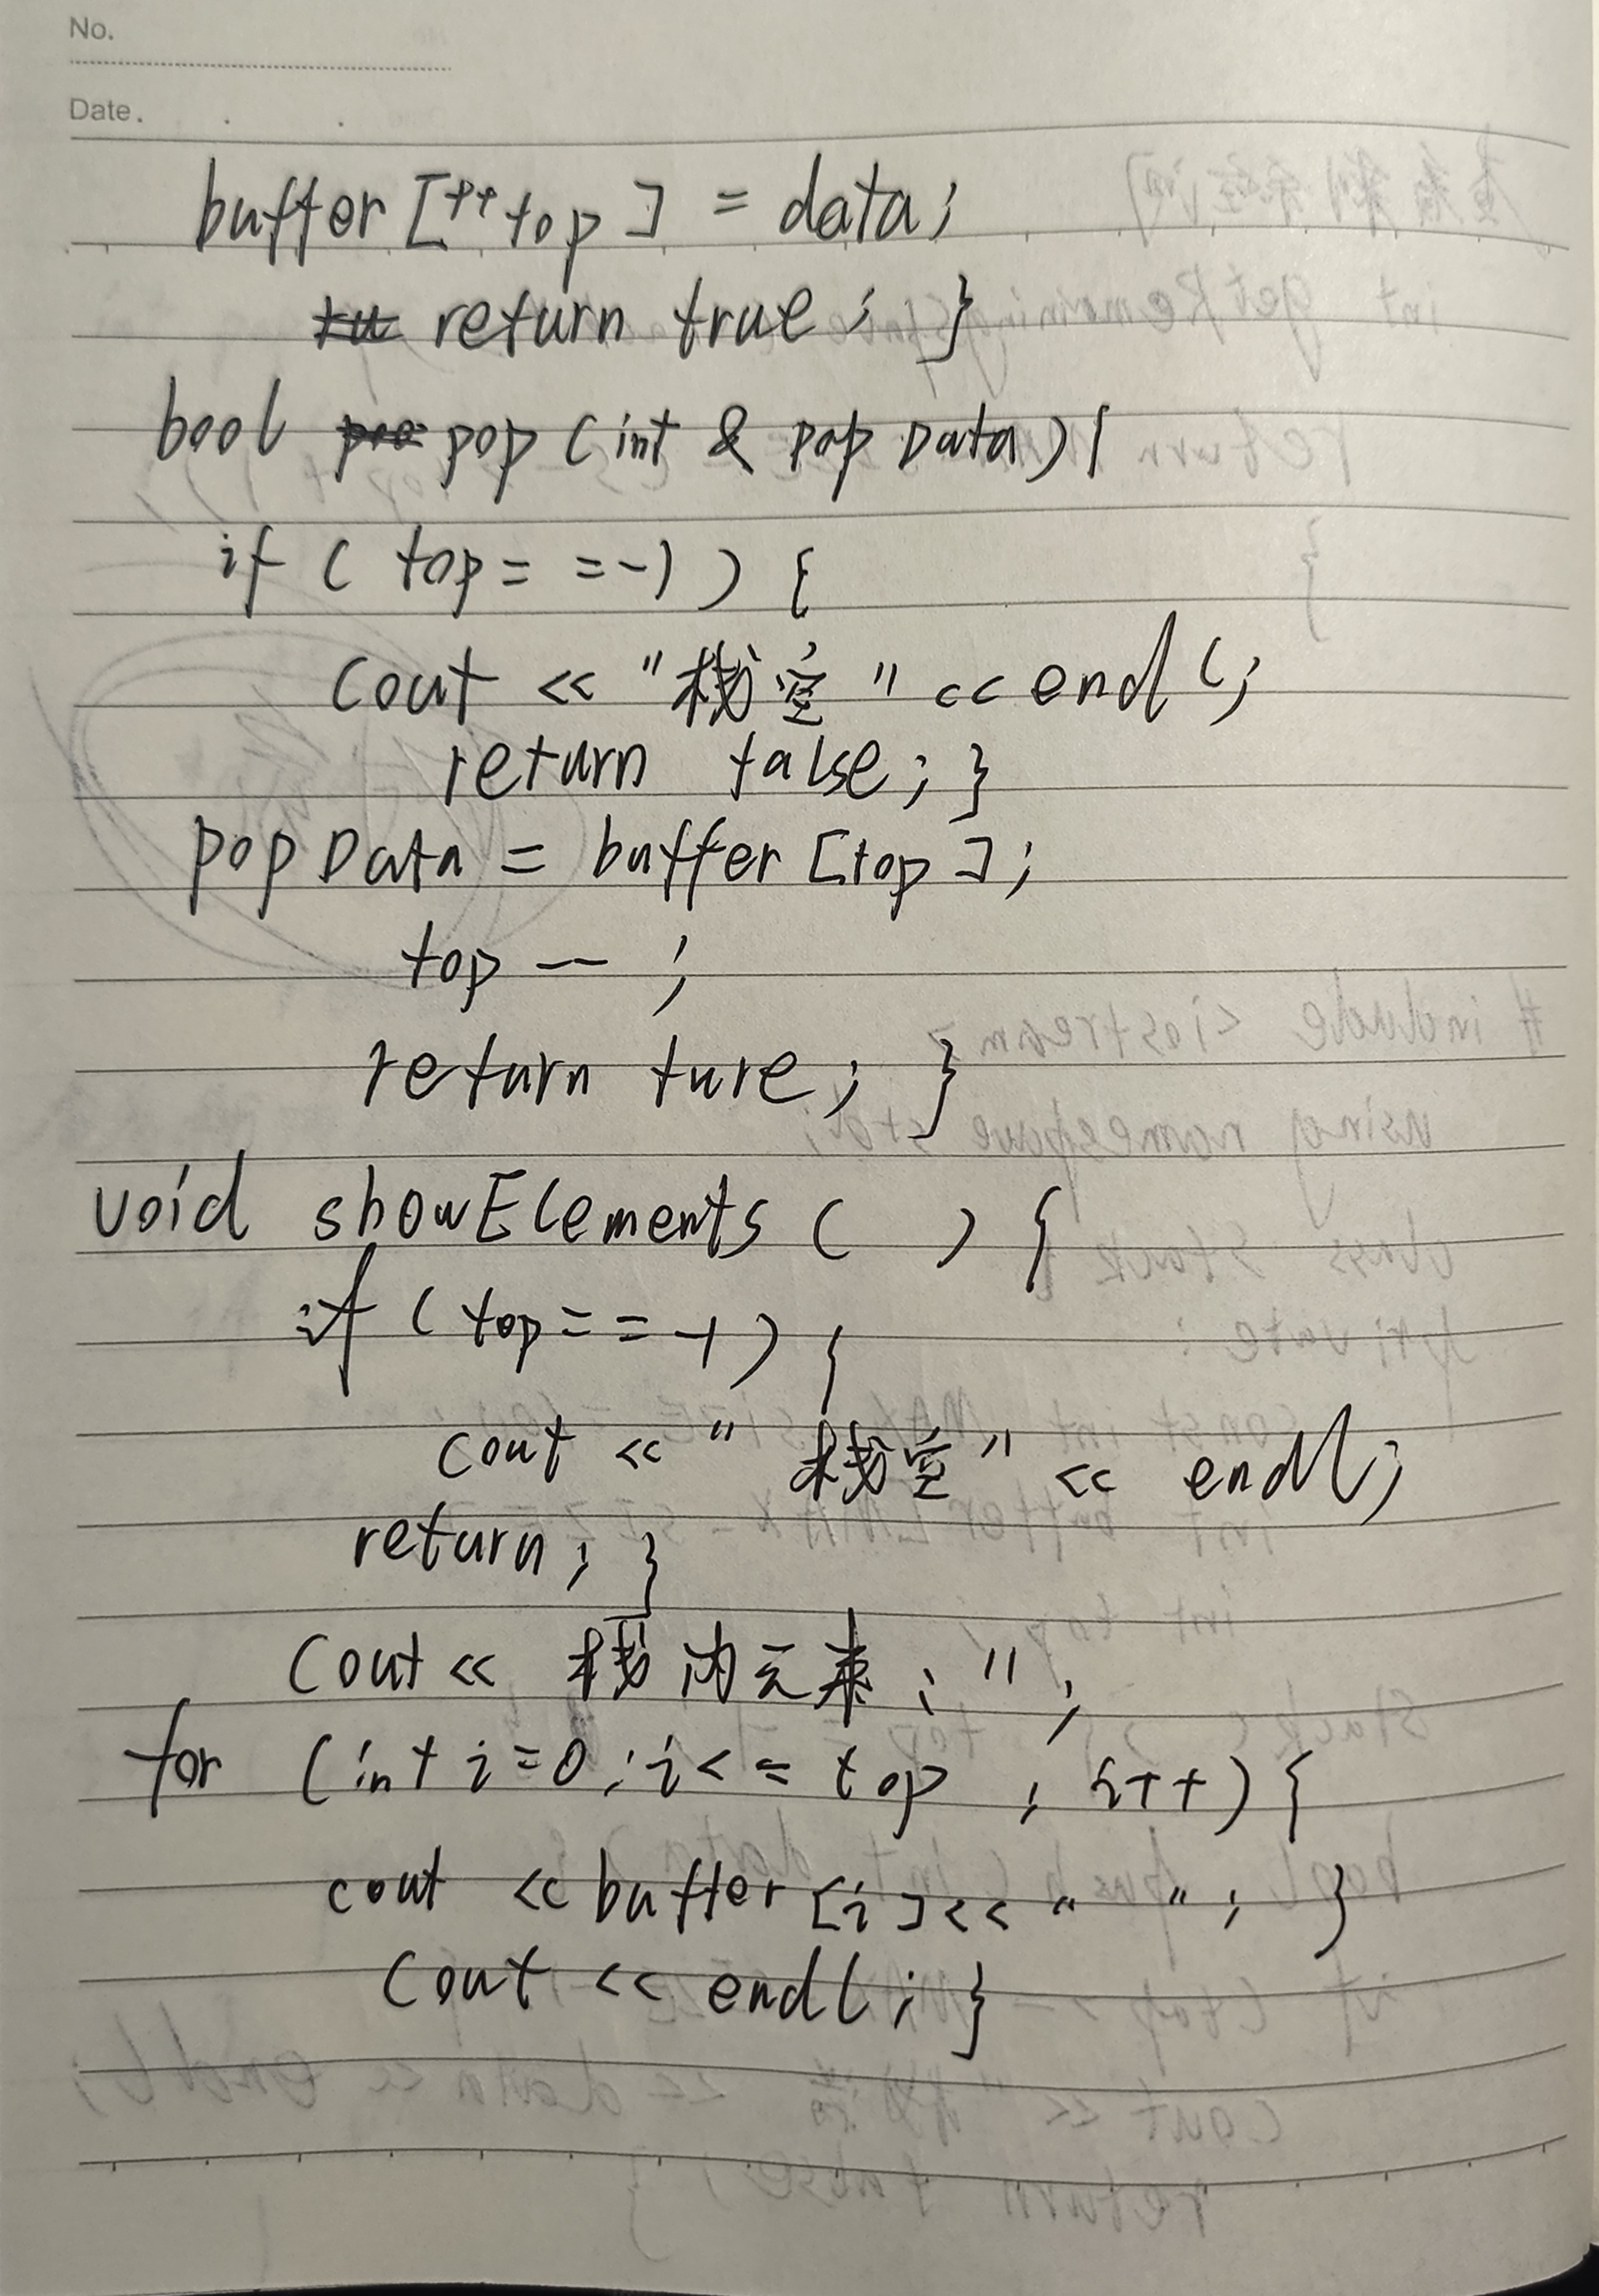 No.
Date.
buffer [++top] = data;
return true; }
bool pop (int & pop Data) {
if ( top = = -1 ) {
cout << "栈空" << endl;
return false; }
pop Data = buffer [top];
top -- ;
return ture; }
void showElements ( ) {
if ( top = = -1 ) {
cout << "栈空" << endl;
return; }
cout << 栈内元素: ";
for (int i=0; i<= top ; i++) {
cout << buffer [i] << " "; }
cout << endl; }